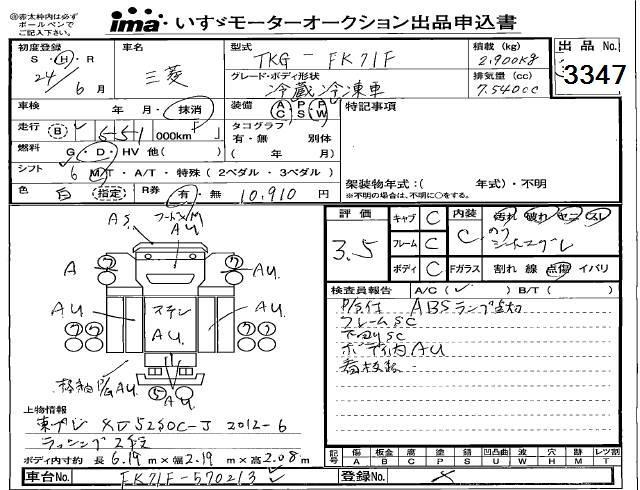 ◎赤太枠内は必ず
ボールペンで
ご記入下さい。
ima いすゞモーターオークション出品申込書
初度登録 車名 型式 積載 (kg) 出品No.
S・H・R 三菱 TKG-FK71F 2,900kg 3347
24年 6月 グレード・ボディ形状 冷蔵冷凍車 排気量 (cc) 7,540cc
車検 年 月・抹消 装備 AC PS PW 特記事項
走行 B 551,000km タコグラフ
有・無 別体
燃料 G・D・HV 他( ) ( 年 月)
シフト 6 M/T・A/T・特殊 (2ペダル・3ペダル)
架装物年式:( 年式)・不明
※不明の場合は、不明に○をする。
色 白 (指定) R券 有・無 10,910 円
評価 3.5 キャブ C 内装 C 汚れ 破れ ヤニ スレ
フレーム C
ボディ C Fガラス 割れ 線 点傷 イバリ
検査員報告 A/C( ) B/T( )
ABSランプ点切
フレームSC
下回りSC
ボディ内AU
看板
AS AU
A AU
AU ステン AU
AU
AU AU
格納PG AU
上物情報
東プレ XV52S0C-J 2012-6
ラッシング2段
ボディ内寸約 長 6.19m×幅 2.19m×高 2.08m
記号 傷 A 板金 B 腐 C 塗 P 錆 S 凹凸曲 U 波 W 穴 H 跡 M レンズ割 T
車台No. FK71F-570213 登録No.